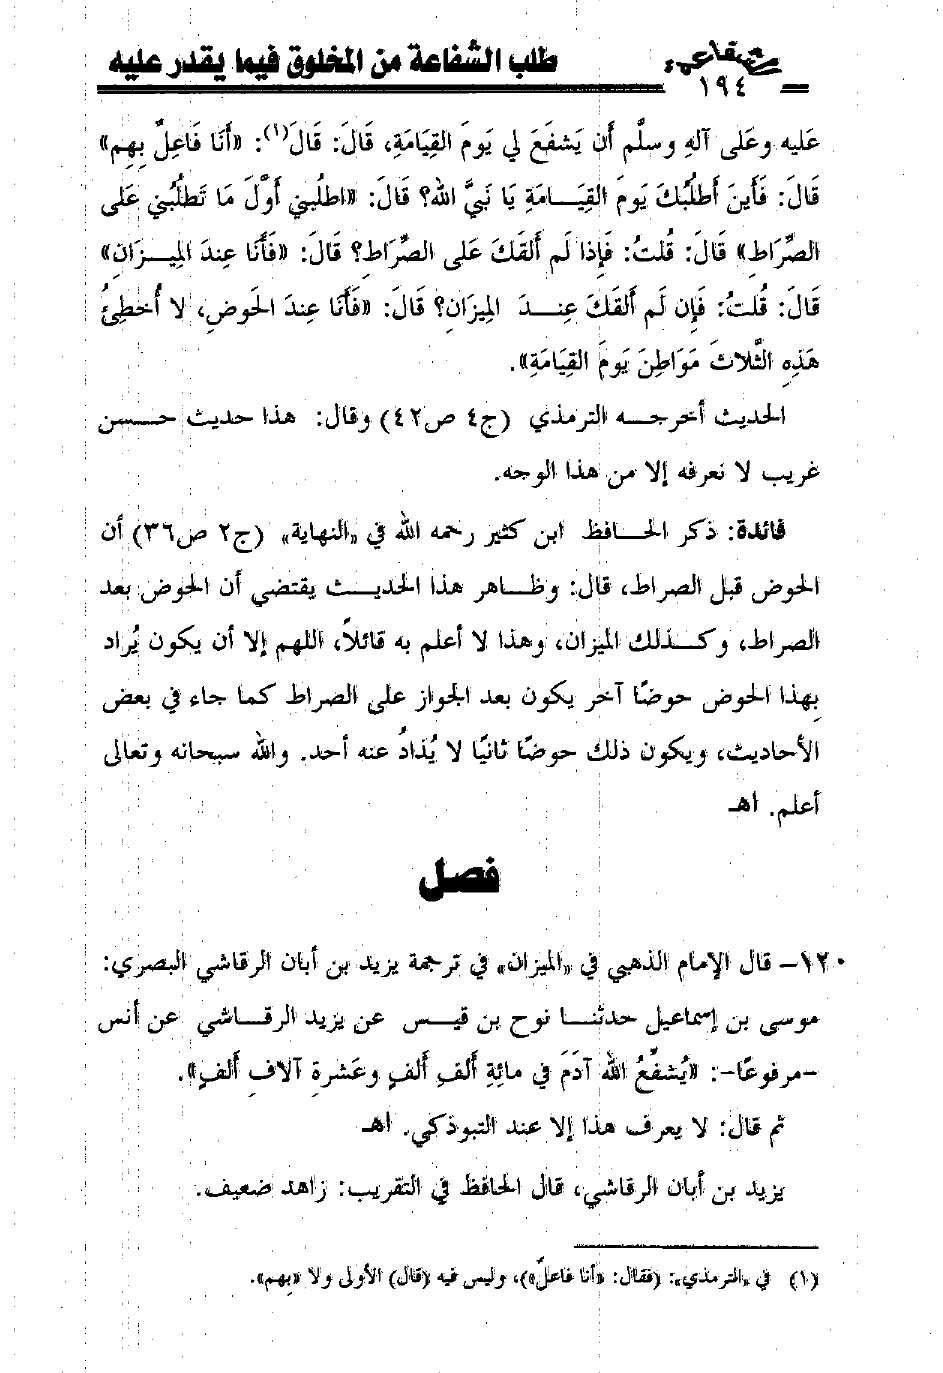 الشفاعة طلب الشفاعة من المخلوق فيما يقدر عليه
١٩٤
عَليه وعَلى آلهِ وسلَّم أَن يَشفَعَ لي يَومَ القِيَامَةِ، قَالَ: قَالَ(١): «أَنَا فَاعِلٌ بِهِم»
قَالَ: فَأَينَ أَطلُبُكَ يَومَ القِيَـامَةِ يَا نَبِيَّ الله؟ قَالَ: «اطلُبنِي أَوَّلَ مَا تَطلُبُنِي عَلى
الصِّرَاطِ» قَالَ: قُلتُ: فَإِذا لَم أَلقَكَ عَلى الصِّرَاط؟ قَالَ: «فَأَنَا عِندَ المِيـزَانِ»
قَالَ: قُلتُ: فَإِن لَم أَلقَكَ عِنـدَ المِيزَانِ؟ قَالَ: «فَأَنَا عِندَ الحَوضِ، لا أُخطِئُ
هَذِهِ الثَّلاثَ مَوَاطِنَ يَومَ القِيَامَةِ».
الحديث أخرجـه الترمذي (ج٤ ص٤٢) وقال: هذا حديث حـسن
غريب لا نعرفه إلا من هذا الوجه.
فائدة: ذكر الحـافظ ابن كثير رحمه الله في «النهاية» (ج٢ ص٣٦) أن
الحوض قبل الصراط، قال: وظـاهر هذا الحديـث يقتضي أن الحوض بعد
الصراط، وكـذلك الميزان، وهذا لا أعلم به قائلاً، اللهم إلا أن يكون يُراد
بهذا الحوض حوضًا آخر يكون بعد الجواز على الصراط كما جاء في بعض
الأحاديث، ويكون ذلك حوضًا ثانيًا لا يُذادُ عنه أحد. والله سبحانه وتعالى
أعلم. اهـ
فصل
١٢٠- قال الإمام الذهبي في «الميزان» في ترجمة يزيد بن أبان الرقاشي البصري:
موسى بن إسماعيل حدثنـا نوح بن قيـس عن يزيد الرقـاشي عن أنس
-مرفوعًا-: «يُشفِّعُ الله آدَمَ في مائِةِ أَلفِ أَلفٍ وعَشرةِ آلافِ أَلفٍ».
ثم قال: لا يعرف هذا إلا عند التبوذكي. اهـ
يزيد بن أبان الرقاشي، قال الحافظ في التقريب: زاهد ضعيف.
(١) في «الترمذي»: (فقال: «أنا فاعلٌ»)، وليس فيه (قال) الأولى ولا «بِهم».